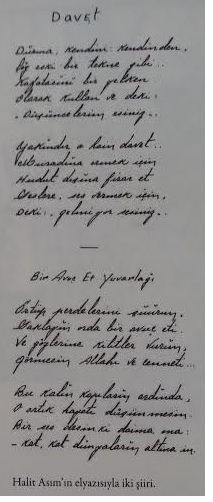 Davet
Düşma, kendini kendinden,
Çiğ eski bir tekne gibi..
Kafatasını bir yelken
Olarak kullan ve de ki:
- Düşüncelerim esiniz..
Yakındır o tam davet..
Muradına ermek için
Hudut dışına firar et
Seslere, ses vermek için,
De ki: geliyor sesiniz..
Bir Avuç Et Yuvarlağı
Örtüp perdelerini şuurun,
Saklayın orda bir avuç eti
Ve gözlerine kilitler vurun,
Görmesin Allahı ve cenneti...
Bu kalın kapıların ardında,
O artık hayatı düşünmesin.
Bir ses desin ki daima ona:
- Kat, kat dünyaların altına in.
Halit Asım'ın elyazısıyla iki şiiri.